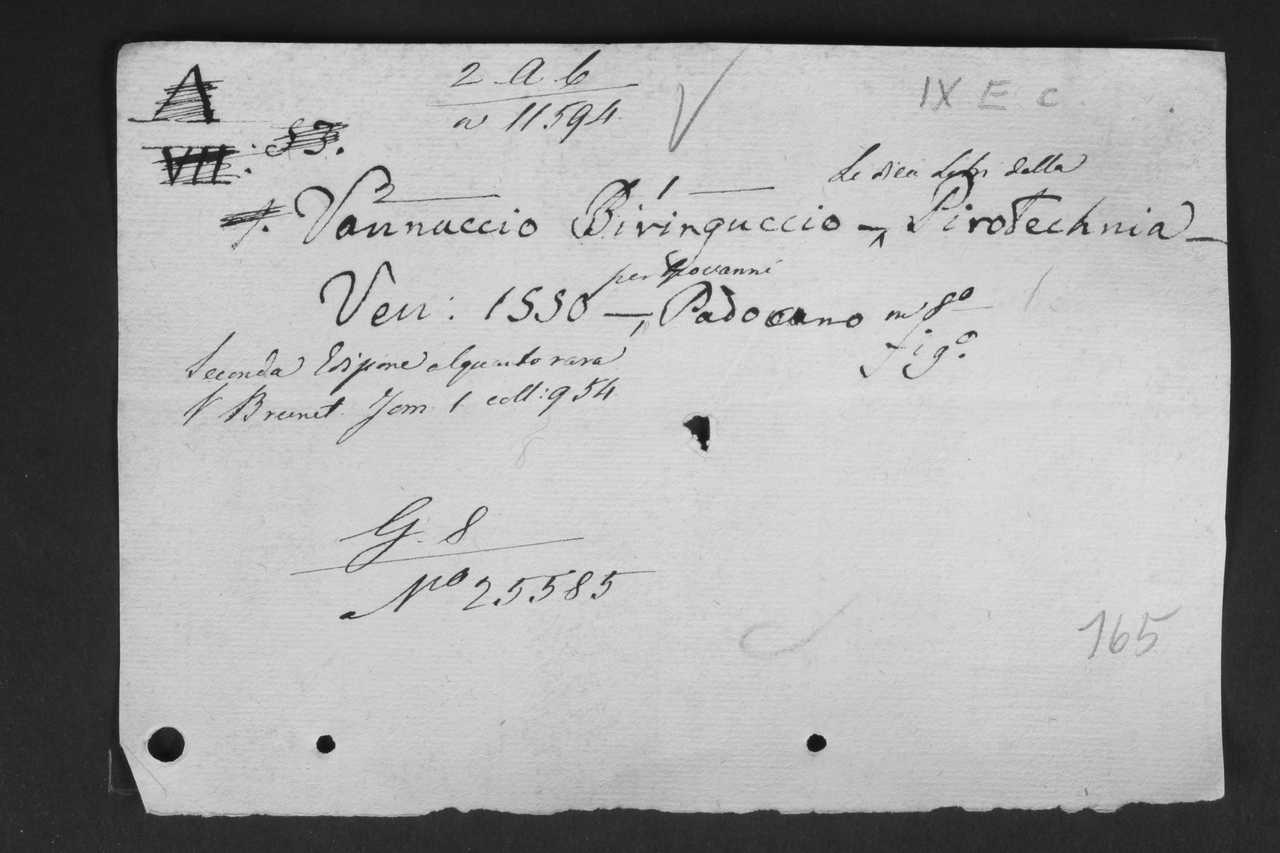 A
2 A b
a 11594
IX E c
VII. 53.
Le dieci Libri della
4. Vannuccio Biringuccio – Pirotechnia –
per Giovanni
Ven: 1550 –, Padoano in 8º
figº.
Seconda Edizione alquanto rara
V Brunet. Tom. 1 coll: 954.
G. 8
Nº 25585
165